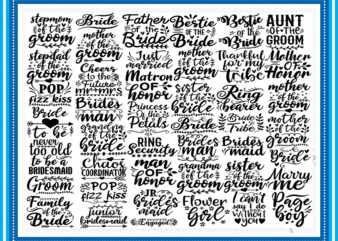 stepmom
of the
groom
stepdad
of the
groom
POP
fizz kiss
Bride
To be
never
too old
to be a
BRIDESMAID
Groom
Family
of the
Bride
Bride
mother
of the
groom
Cheers
to the
Future
Brides
man
grandpa
of the
Bride
Chaos
COORDINATOR
POP
fizz kiss
junior
bridesmaid
Father
of the
Bride
Just
married
Matron
OF
honor
Princess
of the
Petals
RING
security
man
OF
honor
JR
brides
maid
Engaged
Bestie
OF THE
Bride
mother
of the
Bride
sister
of the
Bride
Bride
Brides
maid
grandma
of the
groom
Flower
girl
Bestie
of the
Bride
Thankful
for my
tribe
Ring
bearer
Bride
Tribe
Brides
maid
sister
of the
groom
I can't
say I do
without
you
AUNT
OF THE
GROOM
Maiden
OF
Honor
mother
of the
groom
mother
of the
groom
Marry
me
Page
boy